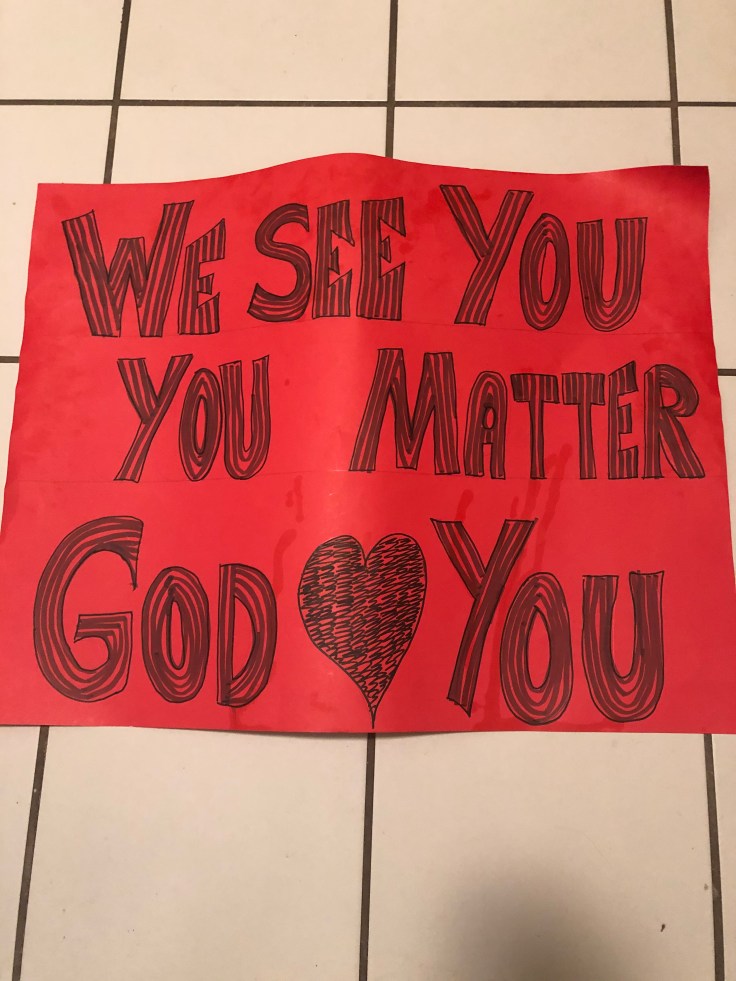 WE SEE YOU
YOU MATTER
GOD ♥ YOU